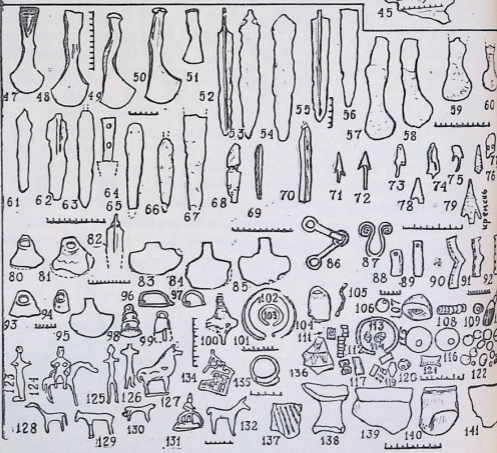 45
47 48 49 50 51 52 53 54 55 56 57 58 59 60
61 62 63 64 65 66 67 68 69 70 71 72 73 74 75 76 78 79
кремень
80 81 82 83 84 85 86 87 88 89 90 91 92
93 94 95 96 97 98 99 100 101 102 103 104 106 107 108 109
111 112 113 116 117 120 121 122
123 124 125 126 127 134 135 136
128 129 130 131 132 137 138 139 140 141